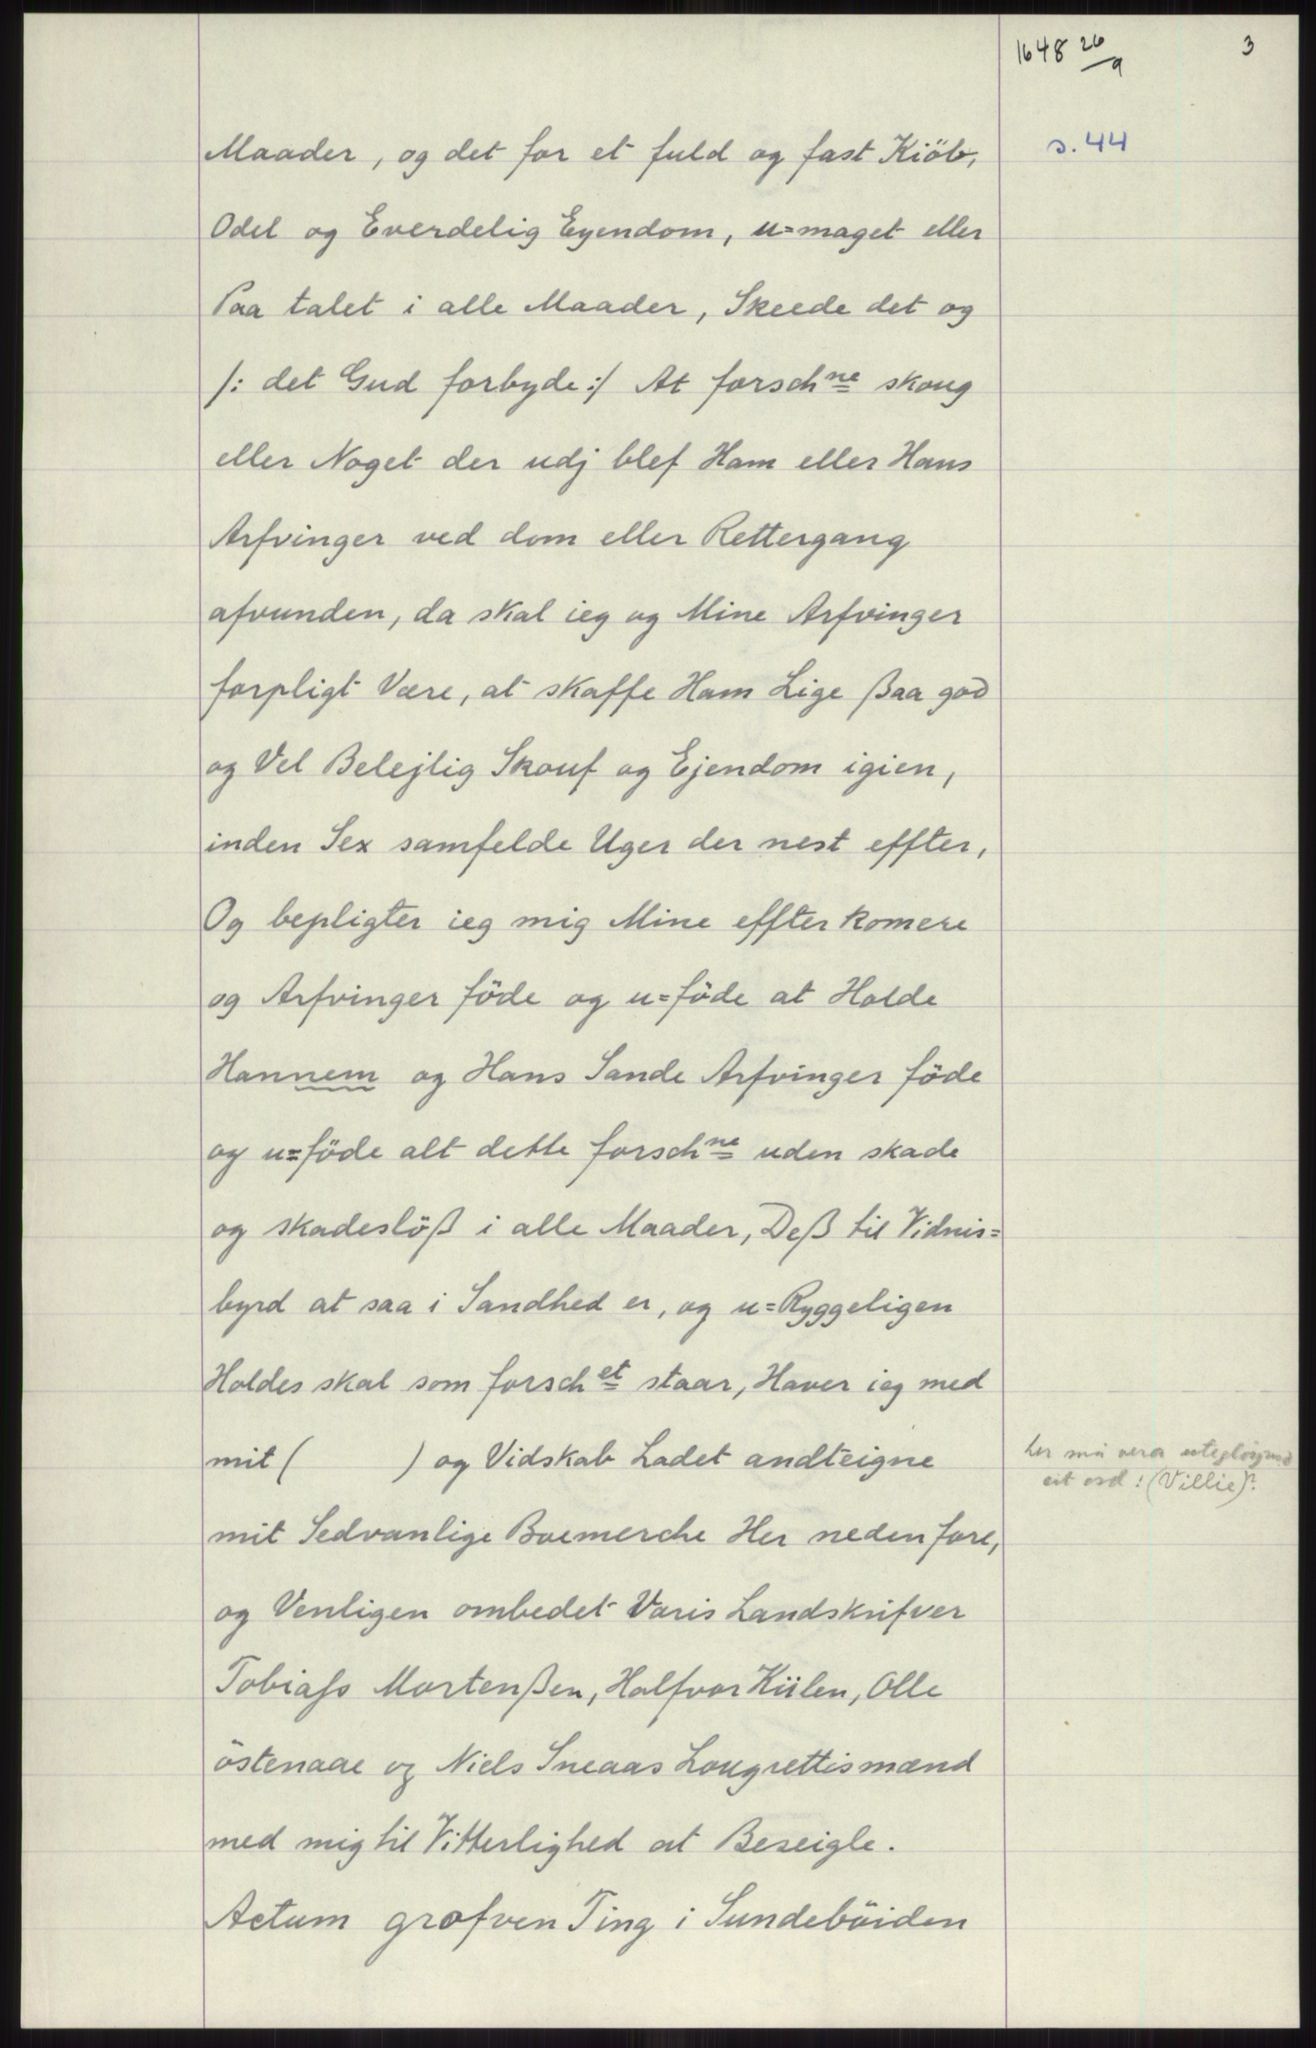 1648 26/9
3
s. 44
Maader, og det for et fuld og fast Kiöb,
Odel og Everdelig Eyendom, u=maget eller
Paa talet i alle Maader, Skeede det og
/: det Gud forbyde :/ At forschne skoug
eller Noget der udj blef Ham eller Hans
Arfvinger ved dom eller Rettergang
afvunden, da skal ieg og Mine Arfvinger
forpligt Være, at skaffe Ham Lige ßaa god
og Vel Belejlig Skouf og Ejendom igien,
inden Sex samfelde Uger der nest effter,
Og bepligter ieg mig Mine effterkomere
og Arfvinger föde og u=föde at Holde
Hannem og Hans Sande Arfvinger föde
og u=föde alt dette forschne uden skade
og skadeslöß i alle Maader, Deß til Vidnis=
byrd at saa i Sandhed er, og u=Ryggeligen
Holdes skal som forschet staar, Haver ieg med
mit (        ) og Vidskab Ladet andteigne
her må vera utegløymd
eit ord: (Villie)?
mit Sedvanlige Boemerche Her neden fore,
og Venligen ombedet Voris Landskrifver
Tobiaſs Mortenßen, Halfvor Kiilen, Olle
östenaae og Niels Sneaas Lougrettismænd
med mig til Vitterlighed at Beseigle.
Actum grafven Ting i Sundeböiden